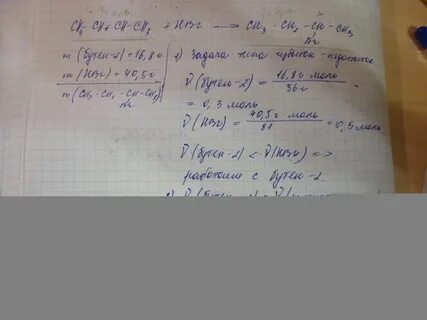 CH₃-CH=CH-CH₃ + HBr → CH₃-CH₂-CH-CH₃
Br
m (бутен-2) = 16,8 г
m (HBr) = 40,5 г
m (CH₃-CH₂-CH-CH₃)
Br
1) Задача типа избыток-недостаток
ν (бутен-2) = 16,8 г·моль / 56 г =
= 0,3 моль
ν (HBr) = 40,5 г·моль / 81 = 0,5 моль
ν (бутен-2) < ν (HBr) =>
работаем с бутен-2.